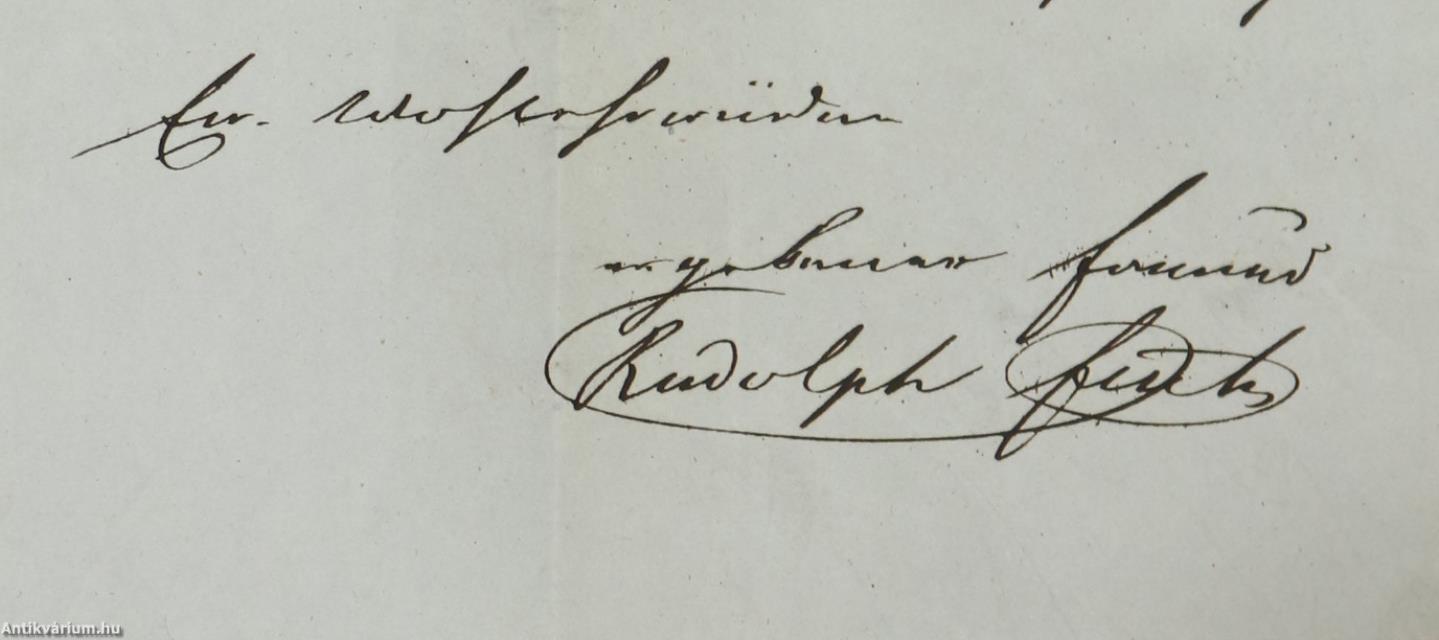 Ew. Wohlehrwürden
ergebener Freund
Rudolph Fuchs
Antikvárium.hu